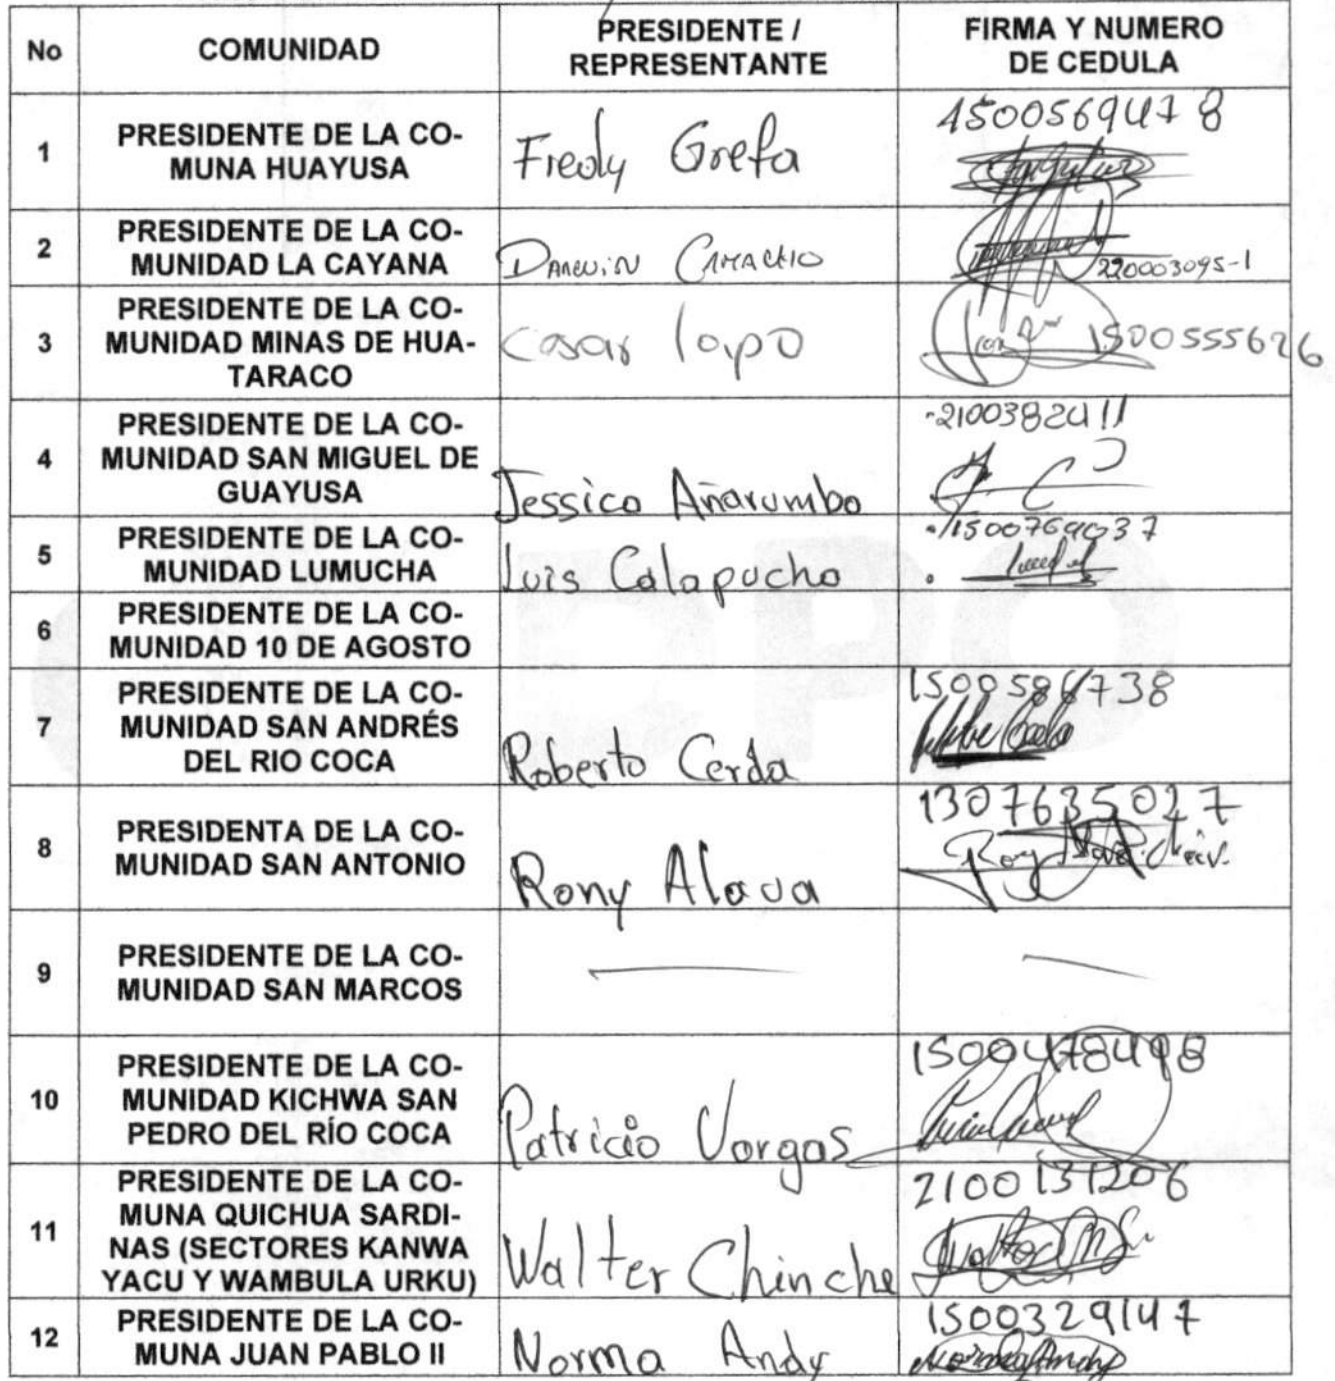 No
COMUNIDAD
PRESIDENTE /
REPRESENTANTE
FIRMA Y NUMERO
DE CEDULA
1
PRESIDENTE DE LA CO-
MUNA HUAYUSA
Fredy Grefa
1500569478
2
PRESIDENTE DE LA CO-
MUNIDAD LA CAYANA
DARWIN CAMACHO
220003095-1
3
PRESIDENTE DE LA CO-
MUNIDAD MINAS DE HUA-
TARACO
Cesar lapo
1500555626
4
PRESIDENTE DE LA CO-
MUNIDAD SAN MIGUEL DE
GUAYUSA
Jessica Añarumbo
2100382411
5
PRESIDENTE DE LA CO-
MUNIDAD LUMUCHA
Luis Calapucha
1500769037
6
PRESIDENTE DE LA CO-
MUNIDAD 10 DE AGOSTO
7
PRESIDENTE DE LA CO-
MUNIDAD SAN ANDRÉS
DEL RIO COCA
Roberto Cerda
1500586738
8
PRESIDENTA DE LA CO-
MUNIDAD SAN ANTONIO
Rony Alava
1307635027
9
PRESIDENTE DE LA CO-
MUNIDAD SAN MARCOS
10
PRESIDENTE DE LA CO-
MUNIDAD KICHWA SAN
PEDRO DEL RÍO COCA
Patricio Vargas
1500478498
11
PRESIDENTE DE LA CO-
MUNA QUICHUA SARDI-
NAS (SECTORES KANWA
YACU Y WAMBULA URKU)
Walter Chinche
2100131206
12
PRESIDENTE DE LA CO-
MUNA JUAN PABLO II
Norma Andy
1500329147
Norma Andy